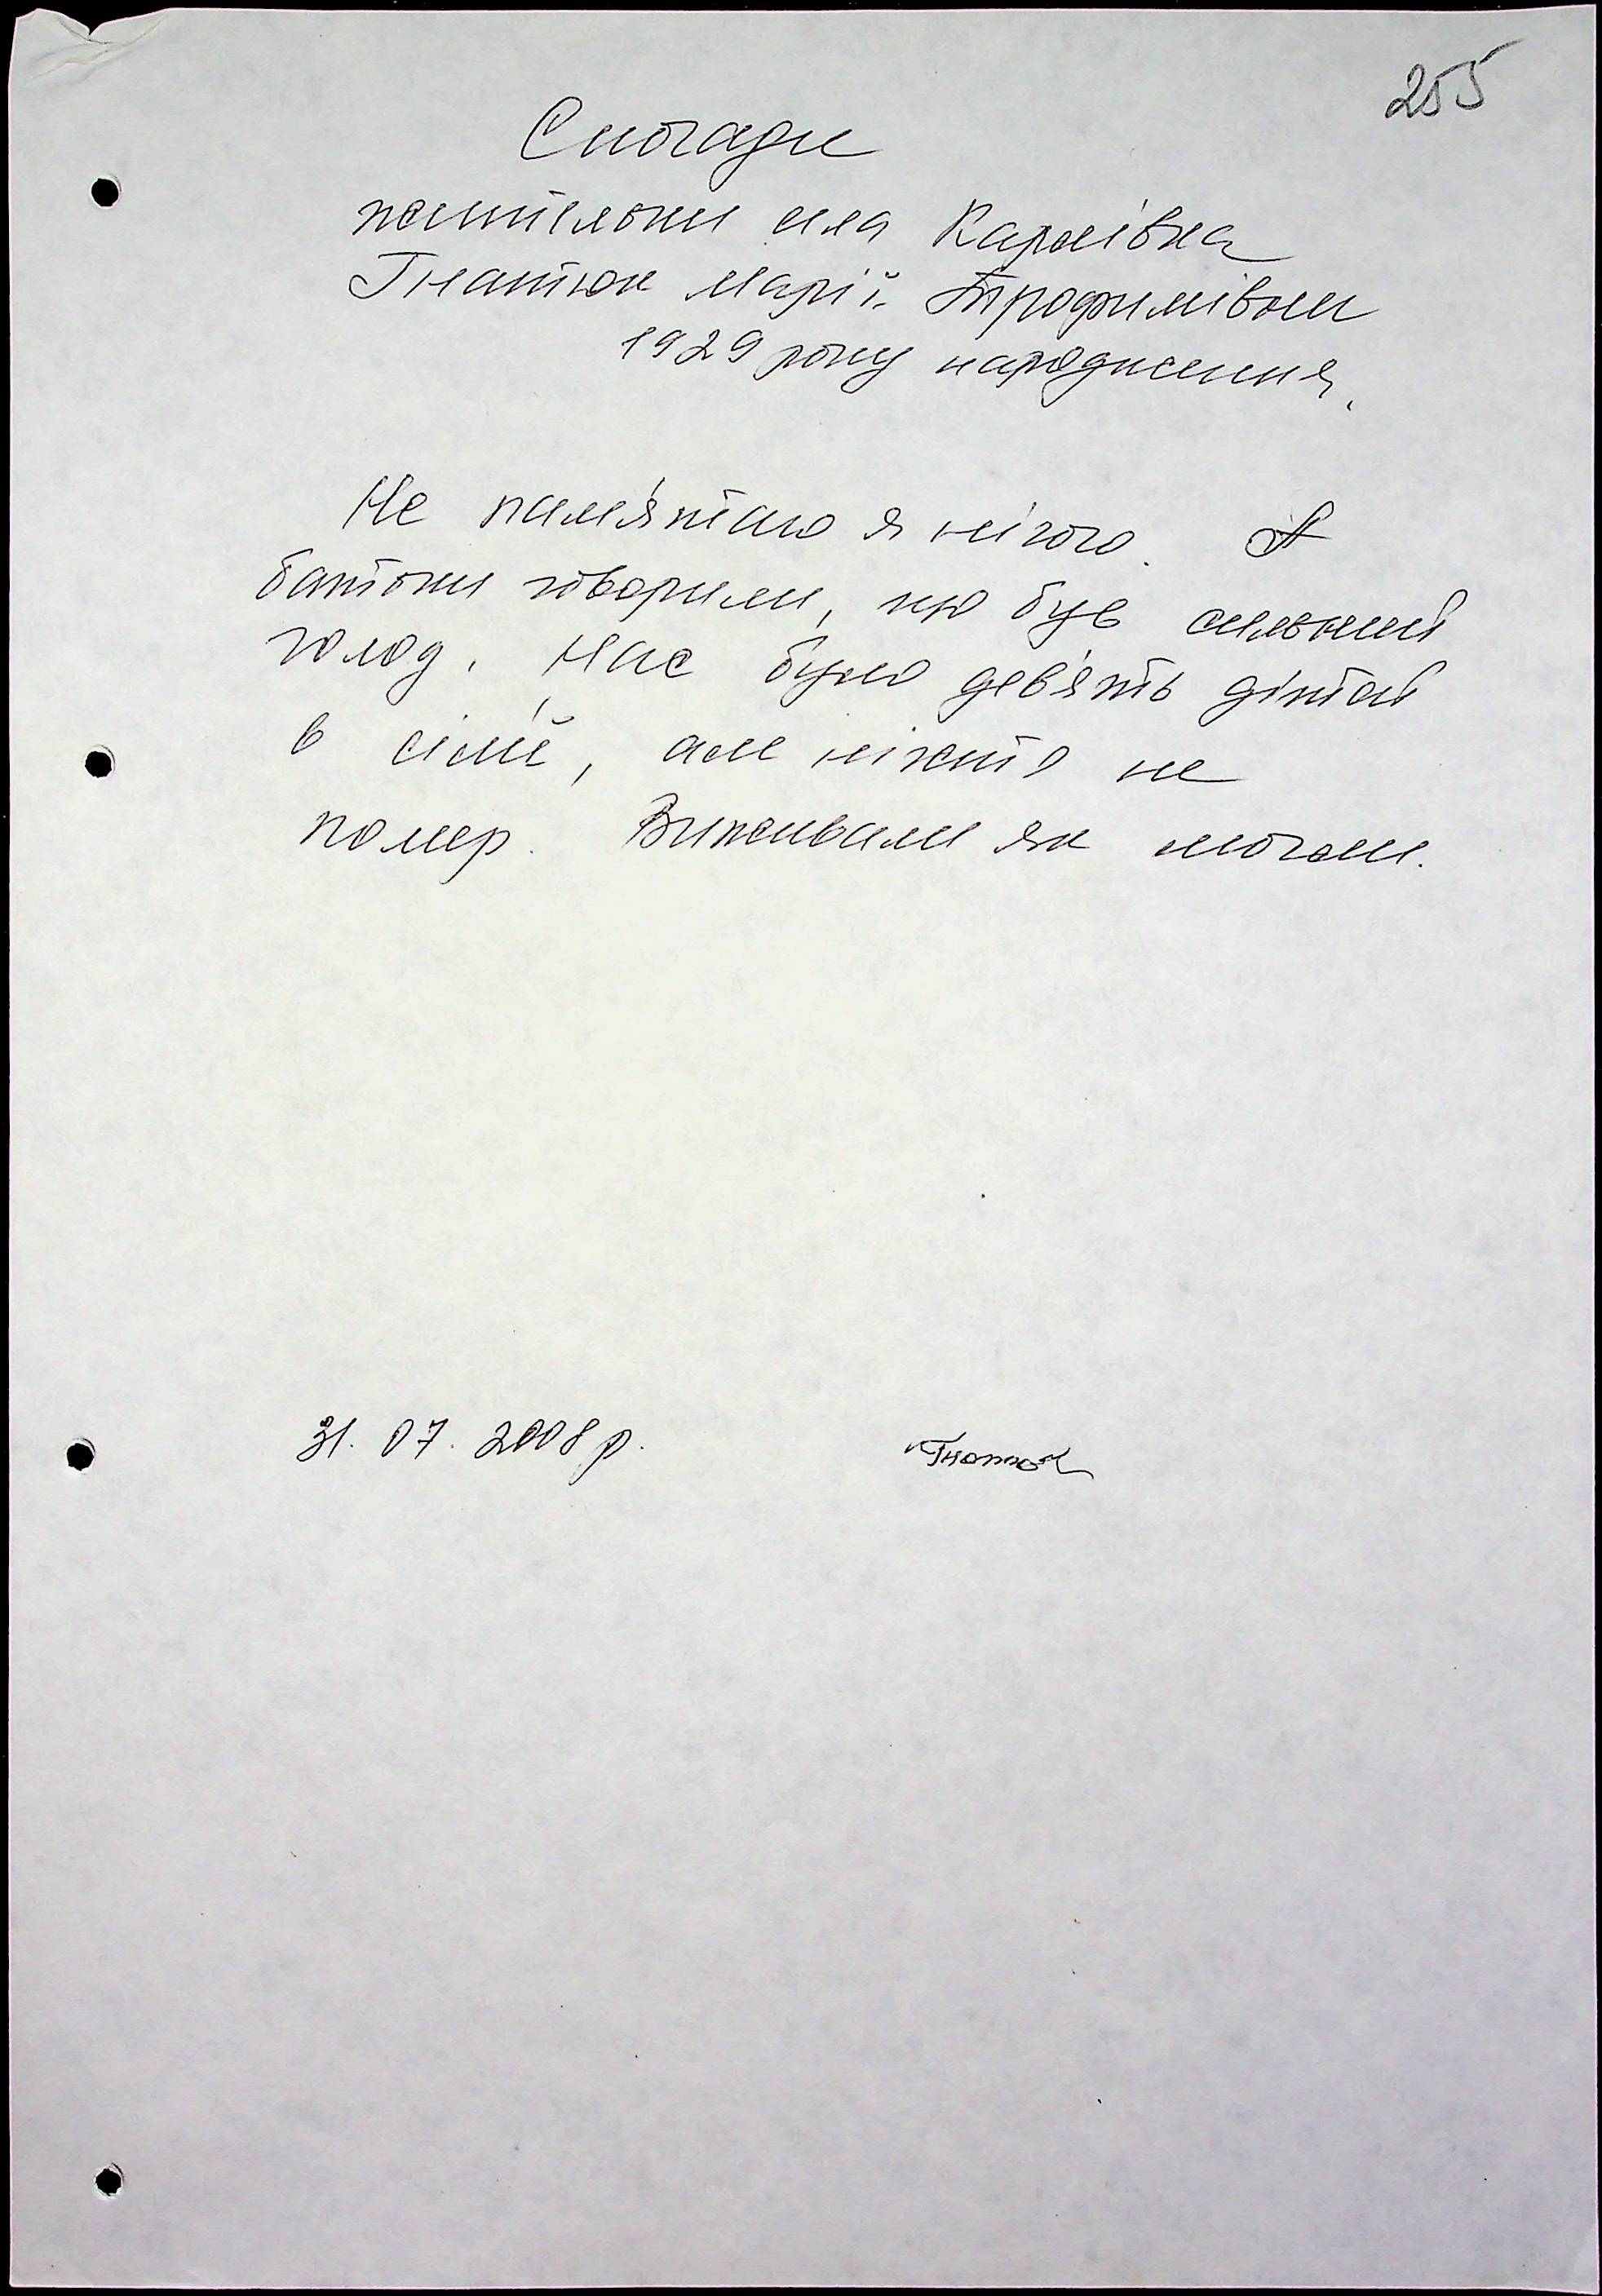 255
Спогади
жительки села Карлівка
Гнатюк Марії Трофимівни
1929 року народження.
Не пам'ятаю я нічого. А
батьки говорили, що був сильний
голод. Нас було дев'ять дітей
в сім'ї, але ніхто не
помер. Виживали як могли.
31.07.2008 р.
Гнатюк